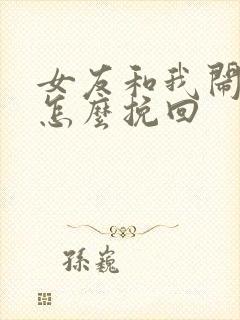 女友和我鬧
怎麼挽回
孫巍